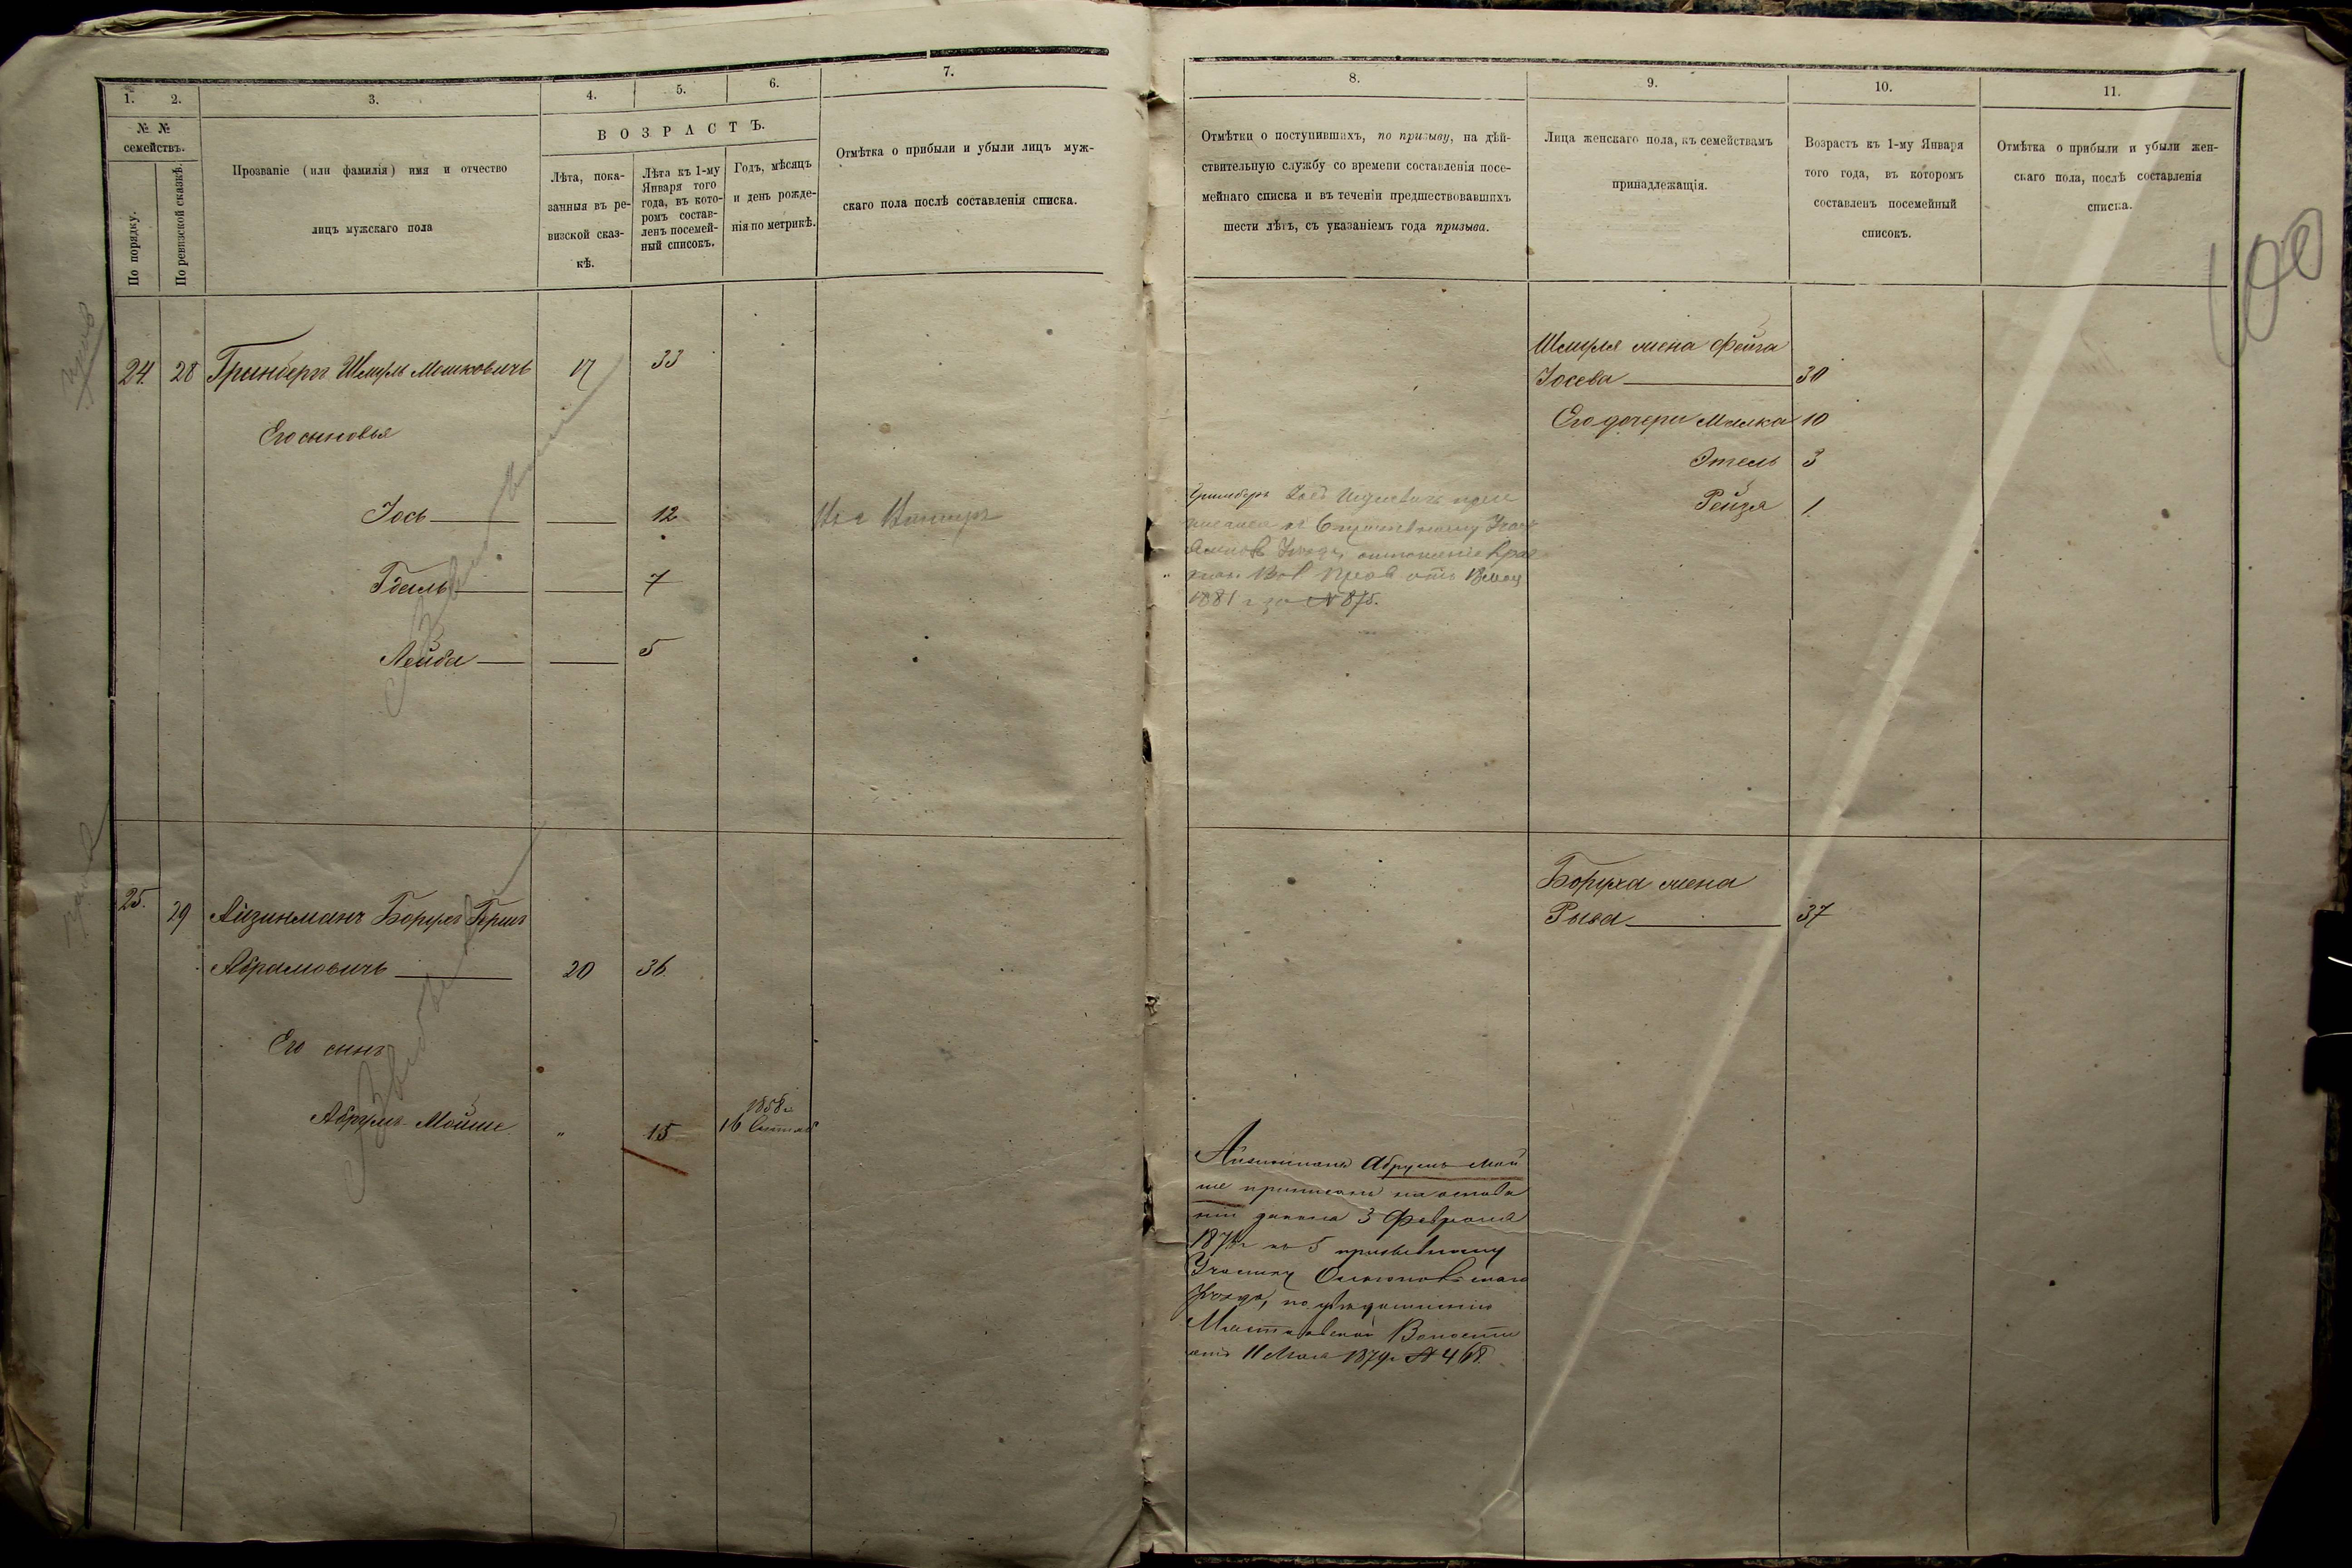 1.
2.
3.
4.
5.
6.
7.
№ №
семействъ.
По порядку.
По ревизской сказкѣ.
Прозваніе (или фамилія) имя и отчество
лицъ мужскаго пола
ВОЗРАСТЪ.
Лѣта, пока-
занныя въ ре-
визской сказ-
кѣ.
Лѣта къ 1-му
Января того
года, въ кото-
ромъ состав-
ленъ посемей-
ный списокъ.
Годъ, мѣсяцъ
и день рожде-
нія по метрикѣ.
Отмѣтка о прибыли и убыли лицъ муж-
скаго пола послѣ составленія списка.
24. 28 Гринбергъ Шмуль Мошковичъ 17 33
Его сыновья
Іось 12
Гдаль 7
Лейба 5
25. 29 Айзинманъ Борухъ Гершъ
Абрамовичъ 20 36.
Его сынъ
Абрумъ-Мойше " 15
1858 г
16
8.
9.
10.
11.
Отмѣтки о поступившихъ, по призыву, на дѣй-
ствительную службу со времени составленія посе-
мейнаго списка и въ теченіи предшествовавшихъ
шести лѣтъ, съ указаніемъ года призыва.
Лица женскаго пола, къ семействамъ
принадлежащія.
Возрастъ къ 1-му Января
того года, въ которомъ
составленъ посемейный
списокъ.
Отмѣтка о прибыли и убыли жен-
скаго пола, послѣ составленія
списка.
100
Шмуля жена Фейга
Іосева 30
Его дочери Малка 10
Этель 3
Рейзя 1
1881 г за № 875.
Боруха жена
Рыва 37
Абрумъ Мой
ше приписанъ на основа
ніи закона 3 Февраля
187 г къ 5 призывному
Участку
Уѣзда, по
Волости
отъ 11 Мая 1874 г № 468.